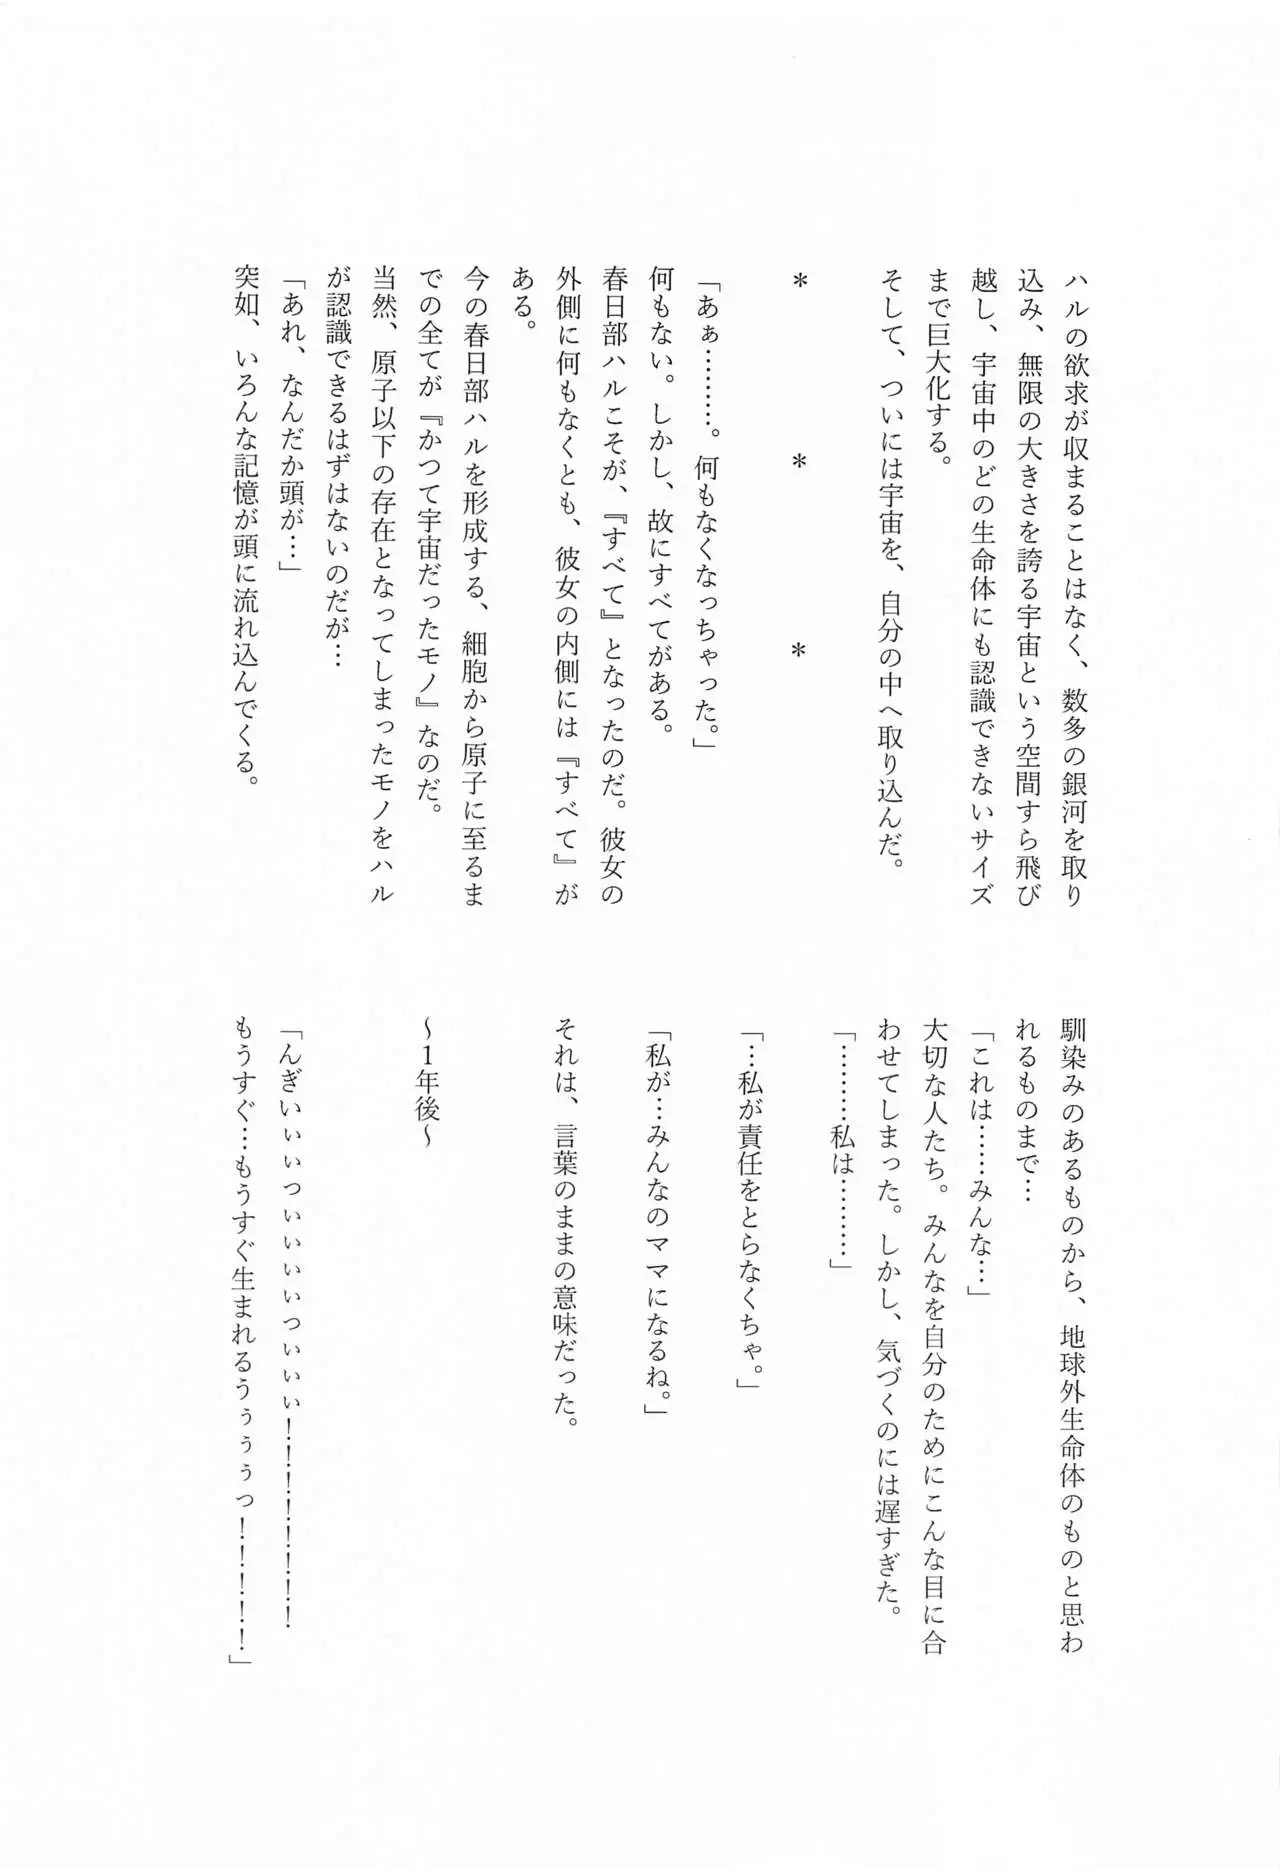 ハルの欲求が収まることはなく、数多の銀河を取り
込み、無限の大きさを誇る宇宙という空間すら飛び
越し、宇宙中のどの生命体にも認識できないサイズ
まで巨大化する。
そして、ついには宇宙を、自分の中へ取り込んだ。
* * *
「あぁ………。何もなくなっちゃった。」
何もない。しかし、故にすべてがある。
春日部ハルこそが、『すべて』となったのだ。彼女の
外側に何もなくとも、彼女の内側には『すべて』が
ある。
今の春日部ハルを形成する、細胞から原子に至るま
での全てが『かつて宇宙だったモノ』なのだ。
当然、原子以下の存在となってしまったモノをハル
が認識できるはずはないのだが…
「あれ、なんだか頭が…」
突如、いろんな記憶が頭に流れ込んでくる。
馴染みのあるものから、地球外生命体のものと思わ
れるものまで…
「これは……みんな…」
大切な人たち。みんなを自分のためにこんな目に合
わせてしまった。しかし、気づくのには遅すぎた。
「………私は………」
「…私が責任をとらなくちゃ。」
「私が…みんなのママになるね。」
それは、言葉のままの意味だった。
～1年後～
「んぎいぃぃっぃぃぃぃっぃぃぃ！！！！！！！！
もうすぐ…もうすぐ生まれるうぅぅぅっ！！！！！」